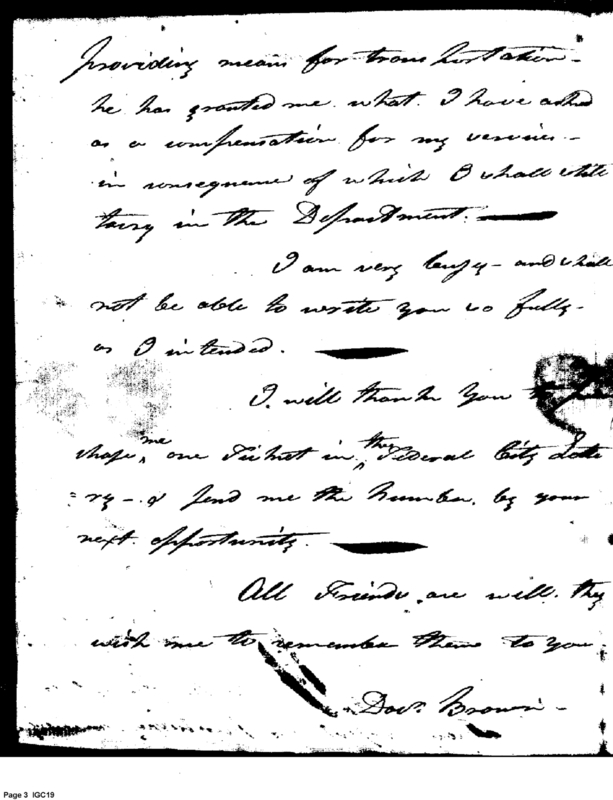 providing means for transportation -
he has granted me what I have asked
as a compensation for my services -
in consequence of which I shall still
tarry in the Department.
I am very busy - and shall
not be able to write you so fully -
as I intended.
I will thank You to
chase me one Ticket in the Federal City Lotte
=ry - & send me the Number by your
next opportunity.
All Friends are well. they
wish me to remember them to you
Davd. Brown -
Page 3 IGC19